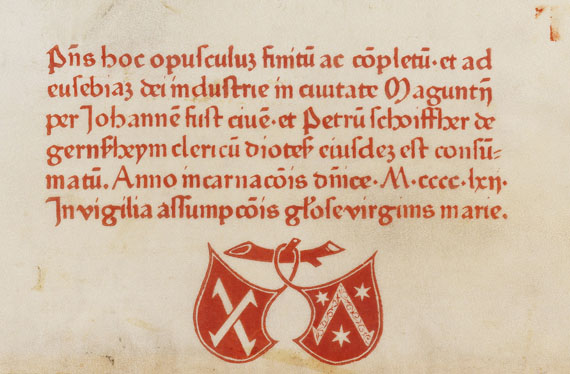 Pn̄s hoc opusculuz finitū ac cōpletū· et ad
eusebiaz dei industrie in ciuitate Maguntij
per Johannē fust ciuē· et Petrū schoiffher de
gernsheym clericū diotes̄ eiusdez est consū-
matū. Anno incarnacōis dn̄ice· M· cccc· lxij·
In vigilia assumpcōis gl̄ose virginis marie.